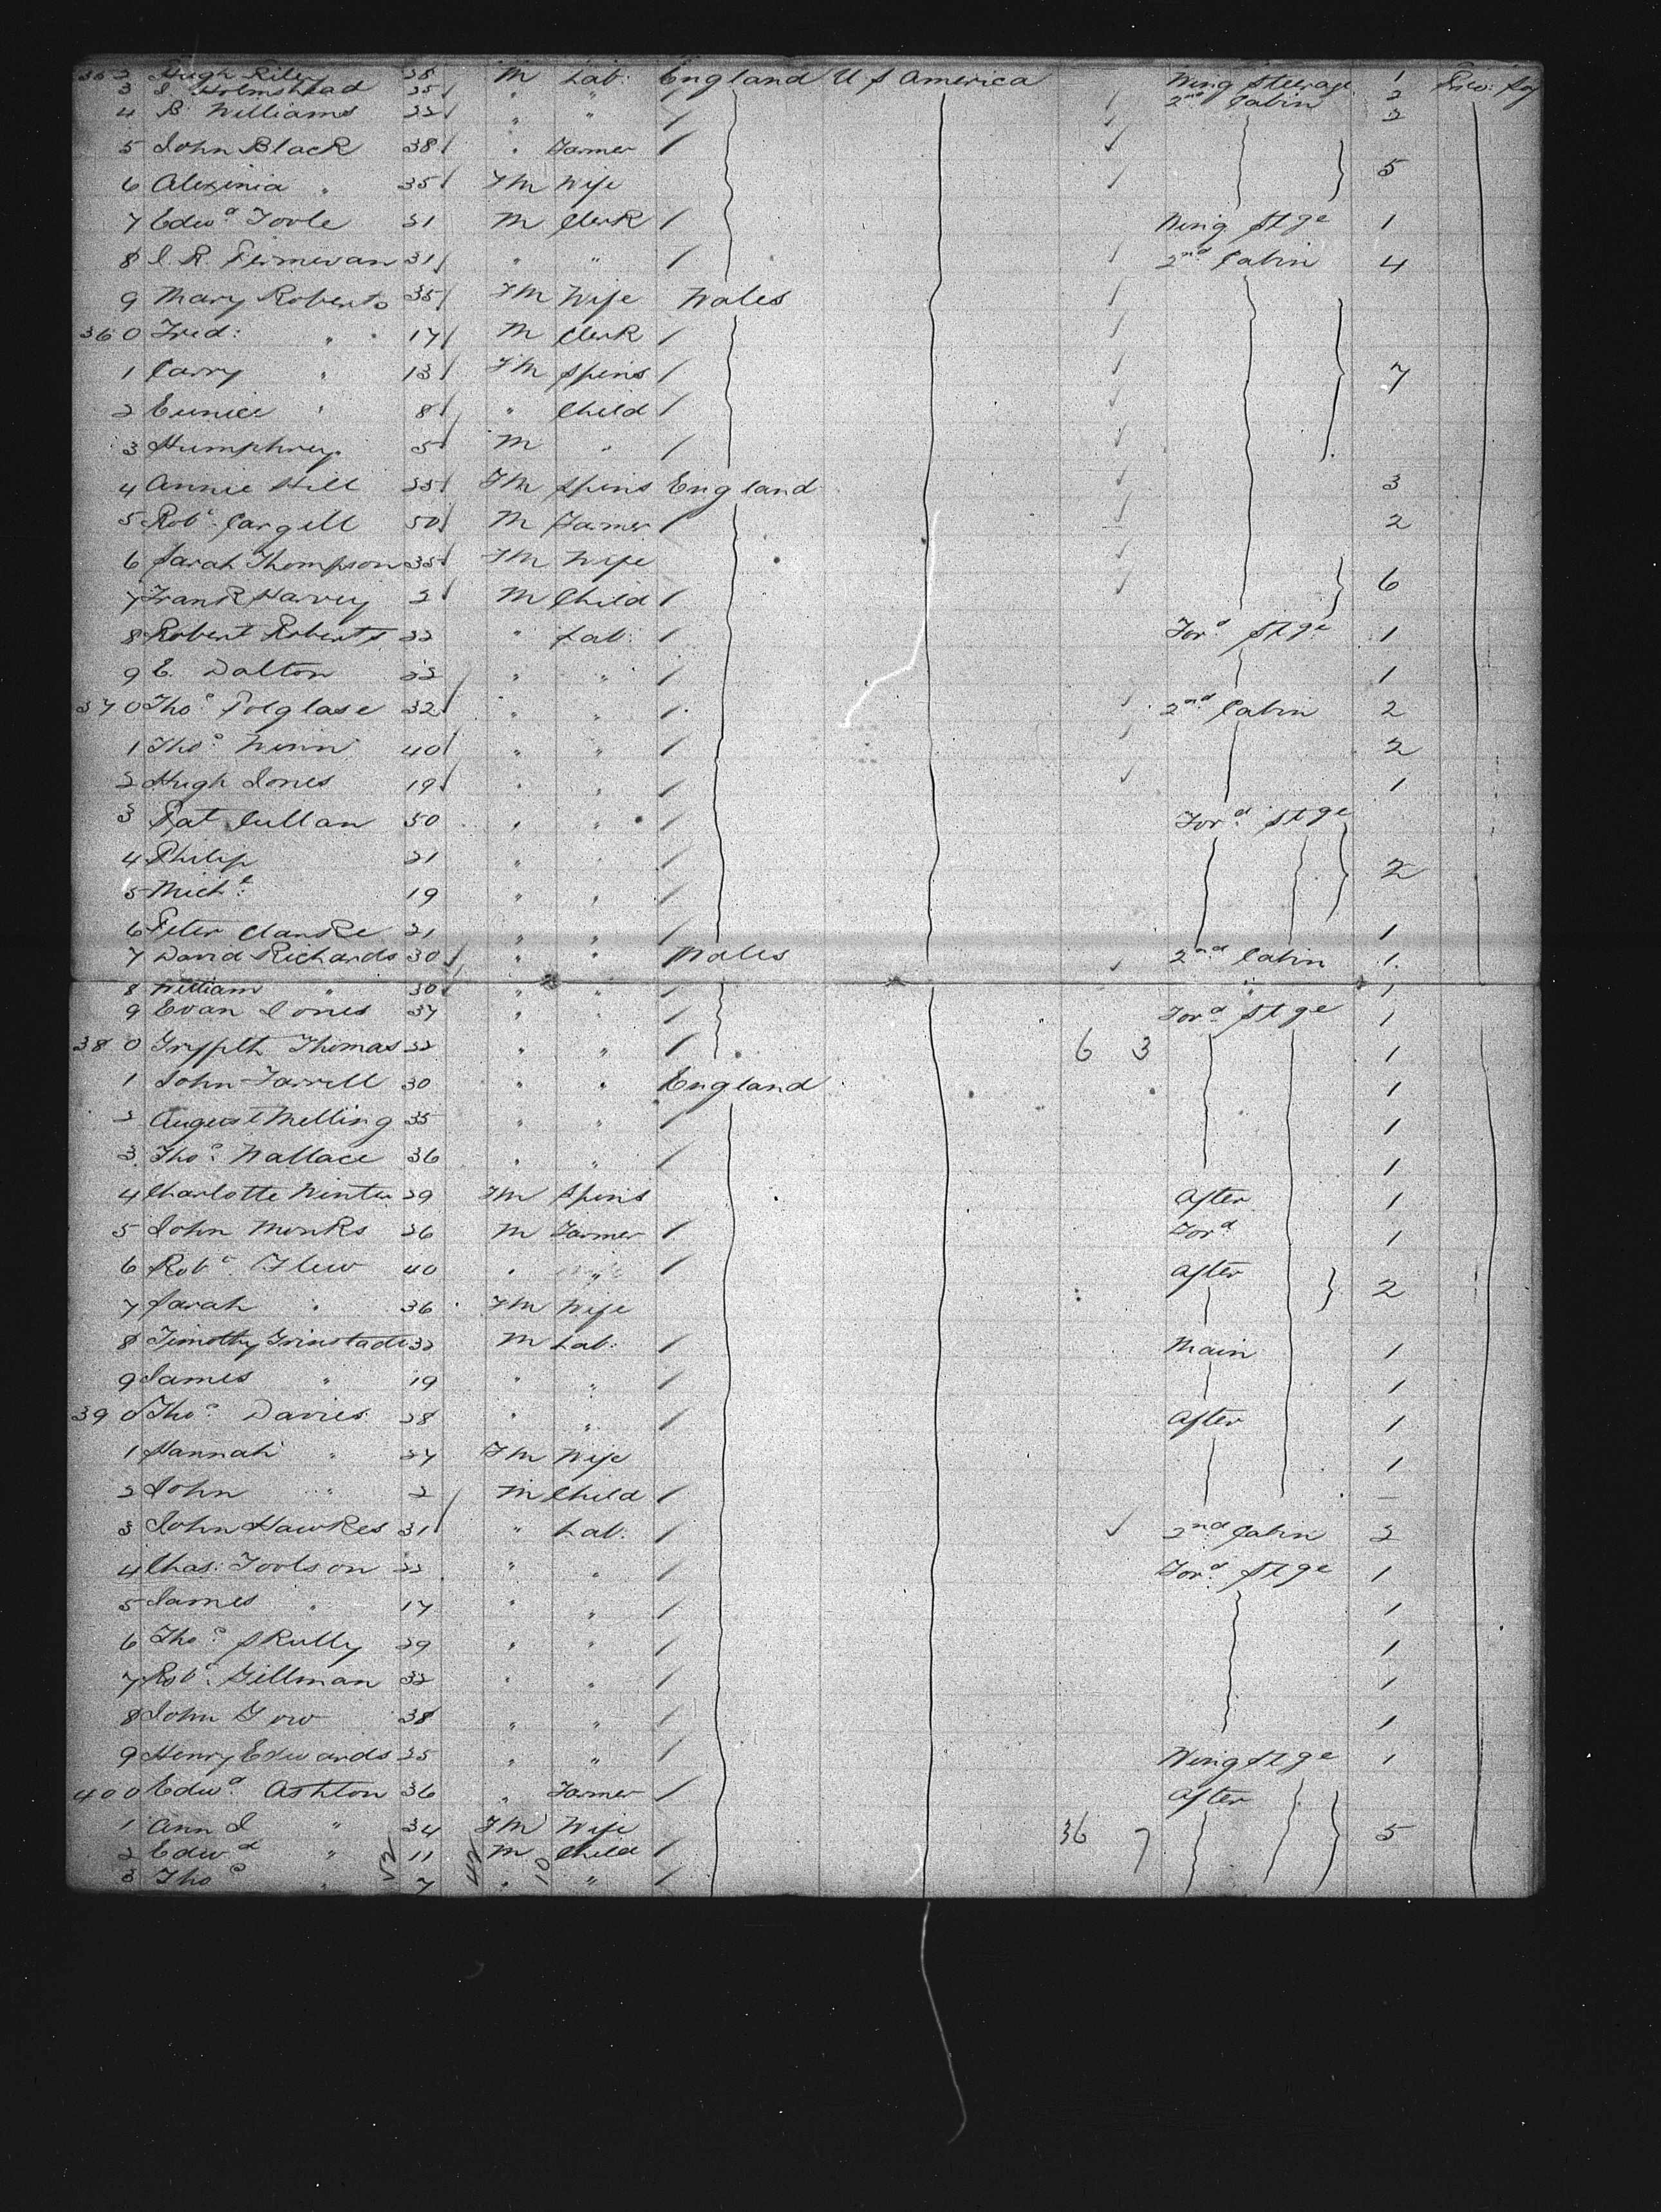 352 Hugh Riley 28 M Lab: England U S America Wing Steerage 1
3 J Holmshead 25 " " 2nd Cabin 2
4 B Williams 22 " " 2
5 John Black 38 " Farmer 5
6 Alexinia " 35 FM Wife
7 Edwd Toole 21 M Clerk Wing Stge 1
8 J. R. 31 " " 2nd Cabin 4
9 Mary Roberts 35 FM Wife Wales
360 Fred: " 17 M Clerk
1 Carry " 13 FM Spins 7
2 Eunice " 8 " Child
3 Humphrey 5 M "
4 Annie Hill 35 FM Spins England 3
5 Robt Cargill 50 M Farmer 2
6 Sarah Thompson 35 FM Wife
7 Frank Harvey 2 M Child 6
8 Robert Roberts 22 " Lab: Ford Stge 1
9 E. Dalton 22 " " 1
370 Thos Polglase 32 " " 2nd Cabin 2
1 Thos Winn 40 " " 2
2 Hugh Jones 19 " " 1
3 Pat Cullan 50 " " Ford Stge
4 Philip 21 " " 2
5 Michl 19 " "
6 Peter Clarke 21 " " 1
7 David Richards 30 " " Wales 2nd Cabin 1
8 William " 30 " " " 1
9 Evan Jones 37 " " Ford Stge 1
380 Gryffth Thomas 22 " " 6 3 1
1 John Farrell 30 " " England 1
2 August Melling 35 " " 1
3 Thos Wallace 36 " " 1
4 Charlotte Winter 29 FM Spins After 1
5 John Monks 26 M Farmer Ford 1
6 Robt Flew 40 " " After 2
7 Sarah " 36 FM Wife
8 Timothy 22 M Lab: Main 1
9 James " 19 " " 1
390 Thos Davies 28 " " After 1
1 Hannah " 27 FM Wife 1
2 John " 2 M Child –
3 John Hawkes 31 " Lab: 2nd Cabin 2
4 Chas: Toolson 22 " " Ford Stge 1
5 James " 17 " " 1
6 Thos Skully 29 " " 1
7 Robt Gillman 32 " " 1
8 John Gow 38 " " 1
9 Henry Edwards 25 " " Wing Stge 1
400 Edwd Ashton 36 " Farmer After
1 Ann J " 34 FM Wife 36 7 5
2 Edwd " 11 M Child
3 Thos " 52 7 42 " 10 "